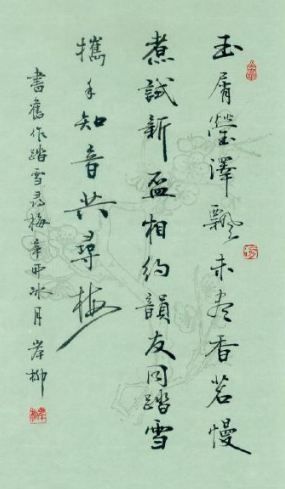 玉屑瑩澤飄未尽香茗慢
煮試新盃相約韻友同踏雪
攜手知音共尋梅
書舊作踏雪尋梅辛卯冰月岸柳